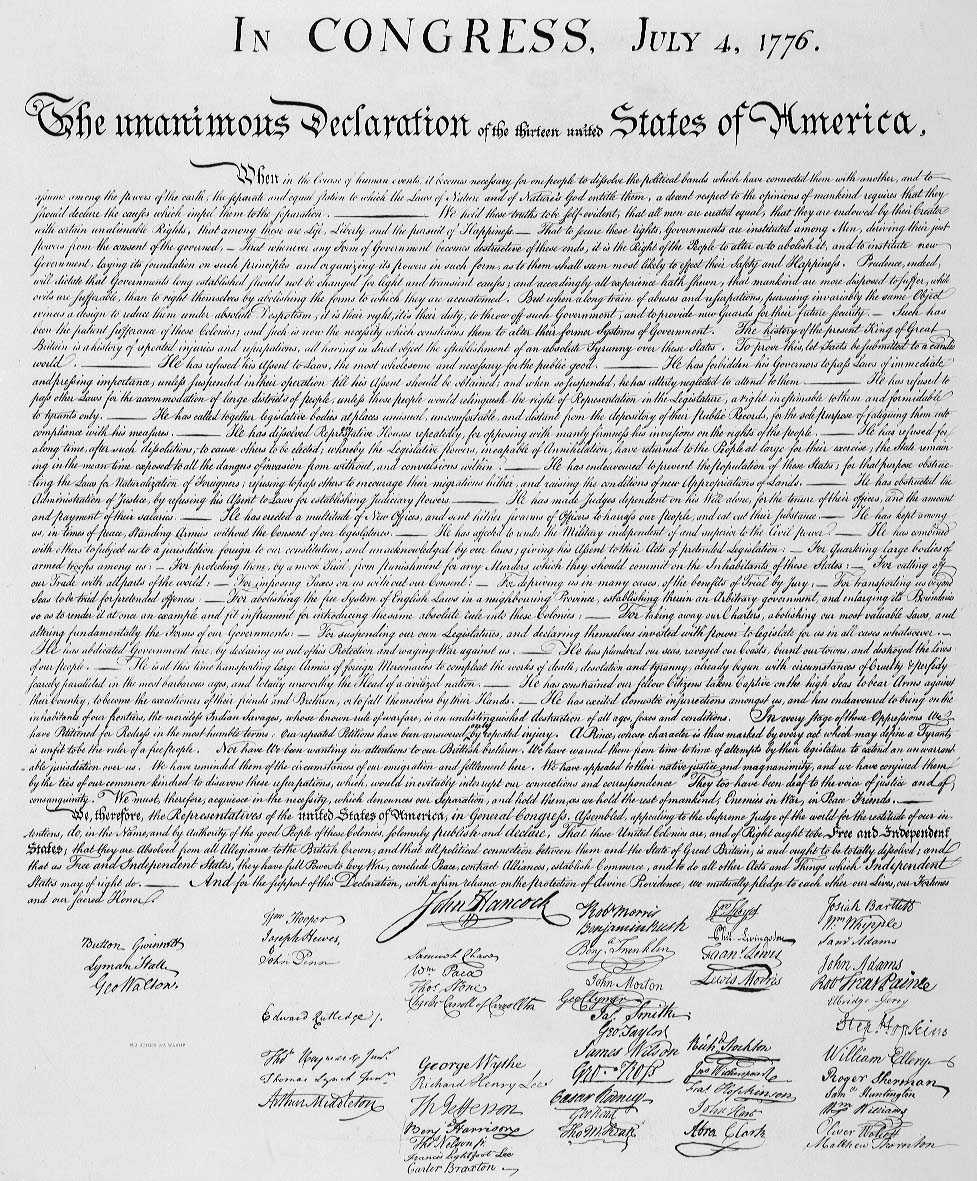 In CONGRESS, July 4, 1776.
The unanimous Declaration of the thirteen united States of America,
When in the Course of human events, it becomes necessary for one people to dissolve the political bands which have connected them with another, and to
assume among the powers of the earth, the separate and equal station to which the Laws of Nature and of Nature's God entitle them, a decent respect to the opinions of mankind requires that they
should declare the causes which impel them to the separation. — We hold these truths to be self-evident, that all men are created equal, that they are endowed by their Creator
with certain unalienable Rights, that among these are Life, Liberty and the pursuit of Happiness.— That to secure these rights, Governments are instituted among Men, deriving their just
powers from the consent of the governed, — That whenever any Form of Government becomes destructive of these ends, it is the Right of the People to alter or to abolish it, and to institute new
Government, laying its foundation on such principles and organizing its powers in such form, as to them shall seem most likely to effect their Safety and Happiness. Prudence, indeed,
will dictate that Governments long established should not be changed for light and transient causes; and accordingly all experience hath shewn, that mankind are more disposed to suffer, while
evils are sufferable, than to right themselves by abolishing the forms to which they are accustomed. But when a long train of abuses and usurpations, pursuing invariably the same Object
evinces a design to reduce them under absolute Despotism, it is their right, it is their duty, to throw off such Government, and to provide new Guards for their future security. — Such has
been the patient sufferance of these Colonies; and such is now the necessity which constrains them to alter their former Systems of Government. The history of the present King of Great
Britain is a history of repeated injuries and usurpations, all having in direct object the establishment of an absolute Tyranny over these States. To prove this, let Facts be submitted to a candid
world. — He has refused his Assent to Laws, the most wholesome and necessary for the public good. — He has forbidden his Governors to pass Laws of immediate
and pressing importance, unless suspended in their operation till his Assent should be obtained; and when so suspended, he has utterly neglected to attend to them. — He has refused to
pass other Laws for the accommodation of large districts of people, unless those people would relinquish the right of Representation in the Legislature, a right inestimable to them and formidable
to tyrants only. — He has called together legislative bodies at places unusual, uncomfortable, and distant from the depository of their Public Records, for the sole purpose of fatiguing them into
compliance with his measures. — He has dissolved Representative Houses repeatedly, for opposing with manly firmness his invasions on the rights of the people. — He has refused for
a long time, after such dissolutions, to cause others to be elected; whereby the Legislative powers, incapable of Annihilation, have returned to the People at large for their exercise; the State remain
ing in the mean time exposed to all the dangers of invasion from without, and convulsions within. — He has endeavoured to prevent the population of these States; for that purpose obstruc-
ting the Laws for Naturalization of Foreigners; refusing to pass others to encourage their migrations hither, and raising the conditions of new Appropriations of Lands. — He has obstructed the
Administration of Justice, by refusing his Assent to Laws for establishing Judiciary powers. — He has made Judges dependent on his Will alone, for the tenure of their offices, and the amount
and payment of their salaries. — He has erected a multitude of New Offices, and sent hither swarms of Officers to harrass our people, and eat out their substance. — He has kept among
us, in times of peace, Standing Armies without the Consent of our legislatures. — He has affected to render the Military independent of and superior to the Civil power. — He has combined
with others to subject us to a jurisdiction foreign to our constitution, and unacknowledged by our laws; giving his Assent to their Acts of pretended Legislation: — For Quartering large bodies of
armed troops among us: — For protecting them, by a mock Trial, from punishment for any Murders which they should commit on the Inhabitants of these States: — For cutting off
our Trade with all parts of the world: — For imposing Taxes on us without our Consent: — For depriving us in many cases, of the benefits of Trial by Jury: — For transporting us beyond
Seas to be tried for pretended offences — For abolishing the free System of English Laws in a neighbouring Province, establishing therein an Arbitrary government, and enlarging its Boundaries
so as to render it at once an example and fit instrument for introducing the same absolute rule into these Colonies: — For taking away our Charters, abolishing our most valuable Laws, and
altering fundamentally the Forms of our Governments: — For suspending our own Legislatures, and declaring themselves invested with power to legislate for us in all cases whatsoever. —
He has abdicated Government here, by declaring us out of his Protection and waging War against us. — He has plundered our seas, ravaged our Coasts, burnt our towns, and destroyed the lives
of our people. — He is at this time transporting large Armies of foreign Mercenaries to compleat the works of death, desolation and tyranny, already begun with circumstances of Cruelty & perfidy
scarcely paralleled in the most barbarous ages, and totally unworthy the Head of a civilized nation. — He has constrained our fellow Citizens taken Captive on the high Seas to bear Arms against
their Country, to become the executioners of their friends and Brethren, or to fall themselves by their Hands. — He has excited domestic insurrections amongst us, and has endeavoured to bring on the
inhabitants of our frontiers, the merciless Indian Savages, whose known rule of warfare, is an undistinguished destruction of all ages, sexes and conditions. In every stage of these Oppressions We
have Petitioned for Redress in the most humble terms: Our repeated Petitions have been answered only by repeated injury. A Prince, whose character is thus marked by every act which may define a Tyrant,
is unfit to be the ruler of a free people. Nor have We been wanting in attentions to our Brittish brethren. We have warned them from time to time of attempts by their legislature to extend an unwarrant-
able jurisdiction over us. We have reminded them of the circumstances of our emigration and settlement here. We have appealed to their native justice and magnanimity, and we have conjured them
by the ties of our common kindred to disavow these usurpations, which, would inevitably interrupt our connections and correspondence. They too have been deaf to the voice of justice and of
consanguinity. We must, therefore, acquiesce in the necessity, which denounces our Separation, and hold them, as we hold the rest of mankind, Enemies in War, in Peace Friends. —
We, therefore, the Representatives of the united States of America, in General Congress, Assembled, appealing to the Supreme Judge of the world for the rectitude of our in-
tentions, do, in the Name, and by Authority of the good People of these Colonies, solemnly publish and declare, That these United Colonies are, and of Right ought to be Free and Independent
States; that they are Absolved from all Allegiance to the British Crown, and that all political connection between them and the State of Great Britain, is and ought to be totally dissolved; and
that as Free and Independent States, they have full Power to levy War, conclude Peace, contract Alliances, establish Commerce, and to do all other Acts and Things which Independent
States may of right do. — And for the support of this Declaration, with a firm reliance on the protection of divine Providence, we mutually pledge to each other our Lives, our Fortunes
and our sacred Honor.
Button Gwinnett
Lyman Hall
Geo Walton.
Wm Hooper
Joseph Hewes,
John Penn
Edward Rutledge /.
Thos Heyward Junr.
Thomas Lynch Junr.
Arthur Middleton
John Hancock
Samuel Chase
Wm Paca
Thos Stone
Charles Carroll of Carrollton
George Wythe
Richard Henry Lee
Th Jefferson
Benj Harrison
Thos Nelson jr.
Francis Lightfoot Lee
Carter Braxton
Robt Morris
Benjamin Rush
Benj. Franklin
John Morton
Geo Clymer
Jas. Smith
Geo. Taylor
James Wilson
Geo. Ross
Caesar Rodney
Geo Read
Tho M:Kean
Wm Floyd
Phil. Livingston
Frans. Lewis
Lewis Morris
Richd. Stockton
Jno Witherspoon
Fras. Hopkinson
John Hart
Abra Clark
Josiah Bartlett
Wm: Whipple
Saml Adams
John Adams
Robt Treat Paine
Elbridge Gerry
Step. Hopkins
William Ellery
Roger Sherman
Saml Huntington
Wm Williams
Oliver Wolcott
Matthew Thornton